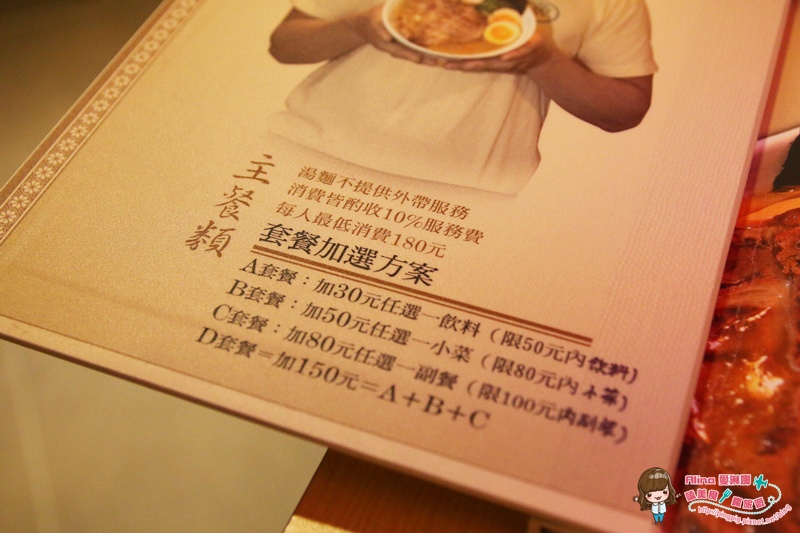 主餐類
湯麵不提供外帶服務
消費皆酌收10%服務費
每人最低消費180元
套餐加選方案
A套餐：加30元任選一飲料（限50元內飲料）
B套餐：加50元任選一小菜（限80元內小菜）
C套餐：加80元任選一副餐（限100元內副餐）
D套餐＝加150元＝A＋B＋C
Alina 愛琳園